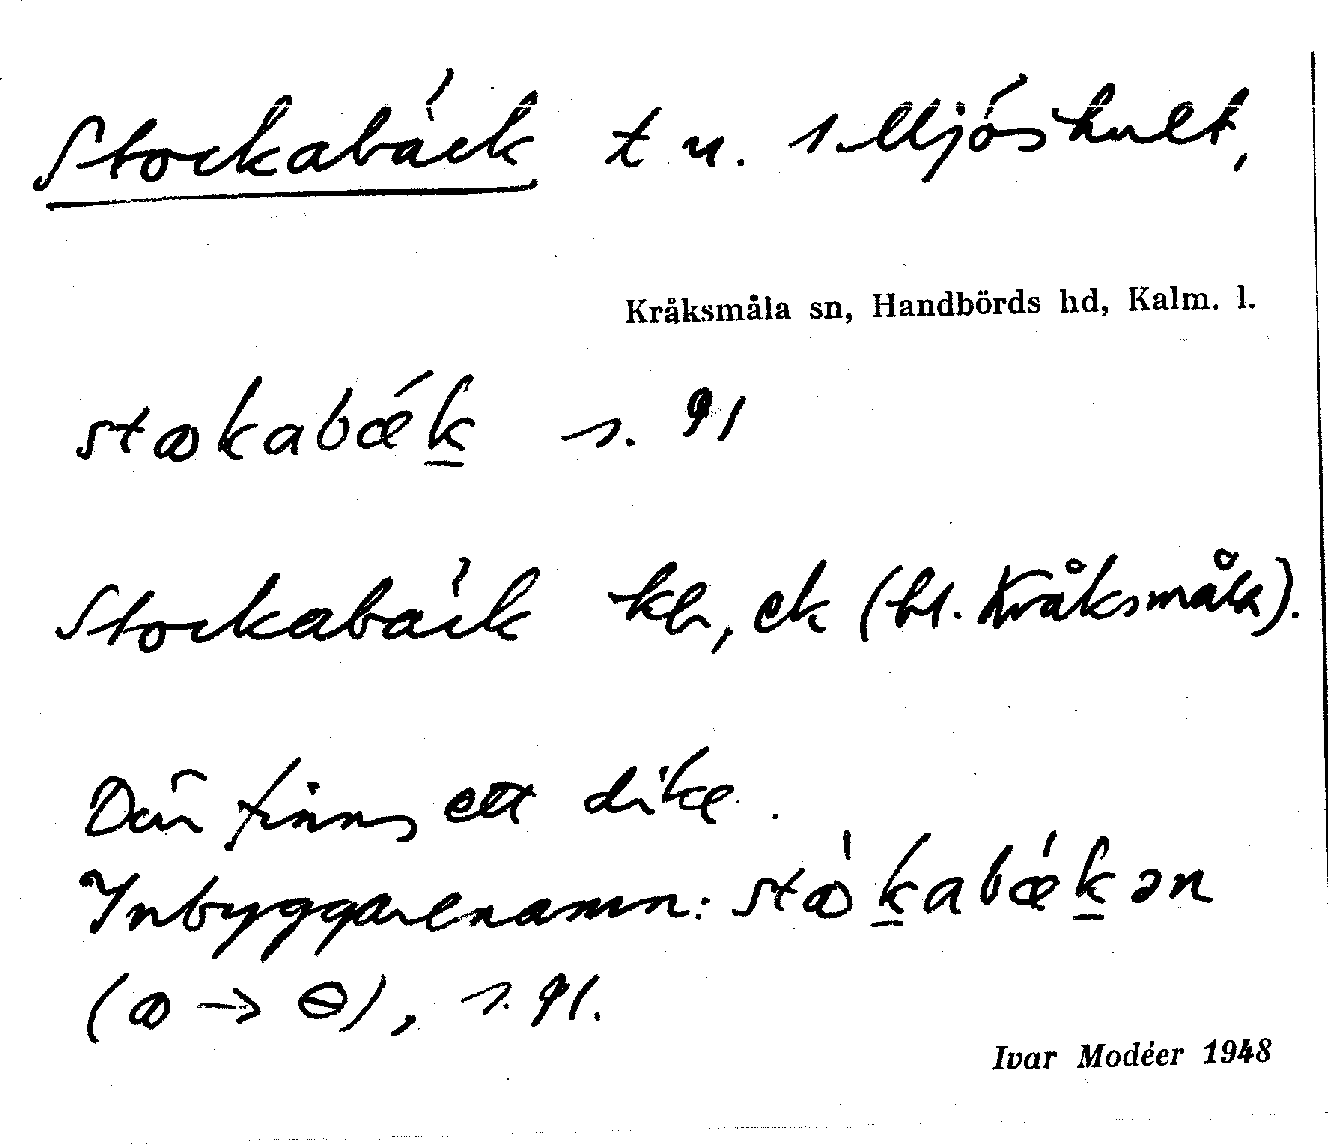 Stockabäck t u.
Kråksmåla sn, Handbörds hd, Kalm. l.
stꝏkabæ´k s. 91
Stockabäck kbl, ek (bl. Kråksmåla).
Där finns ett dike.
Inbyggarenamn: stꝏ´kabæ´kən
(ꝏ → ɵ), s. 91.
Ivar Modéer 1948